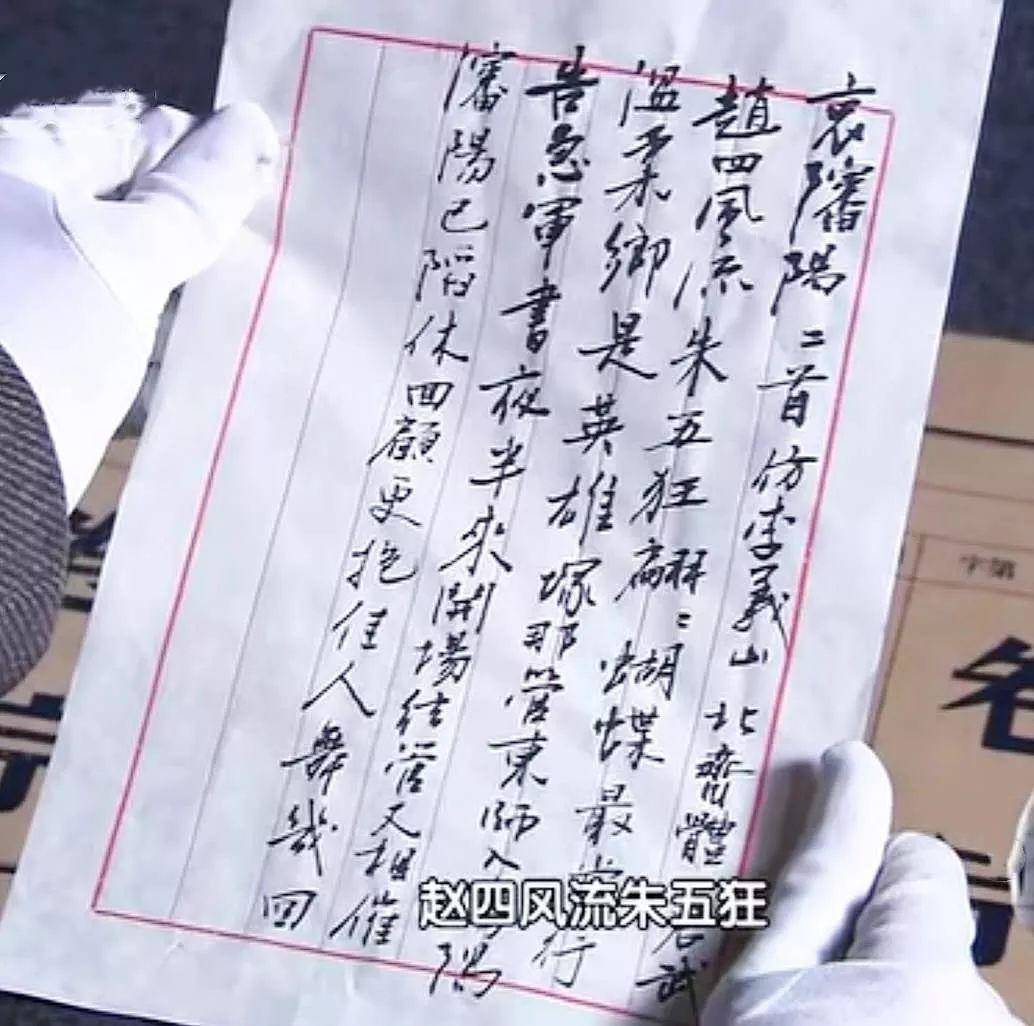 哀瀋陽二首仿李義山北齊體 武
趙四風流朱五狂翩〻蝴蝶最當行
溫柔鄉是英雄塚那管東師入瀋陽
告急軍書夜半來開場絃管又相催
瀋陽已陷休回顧更抱佳人舞幾回
赵四风流朱五狂
字第
名